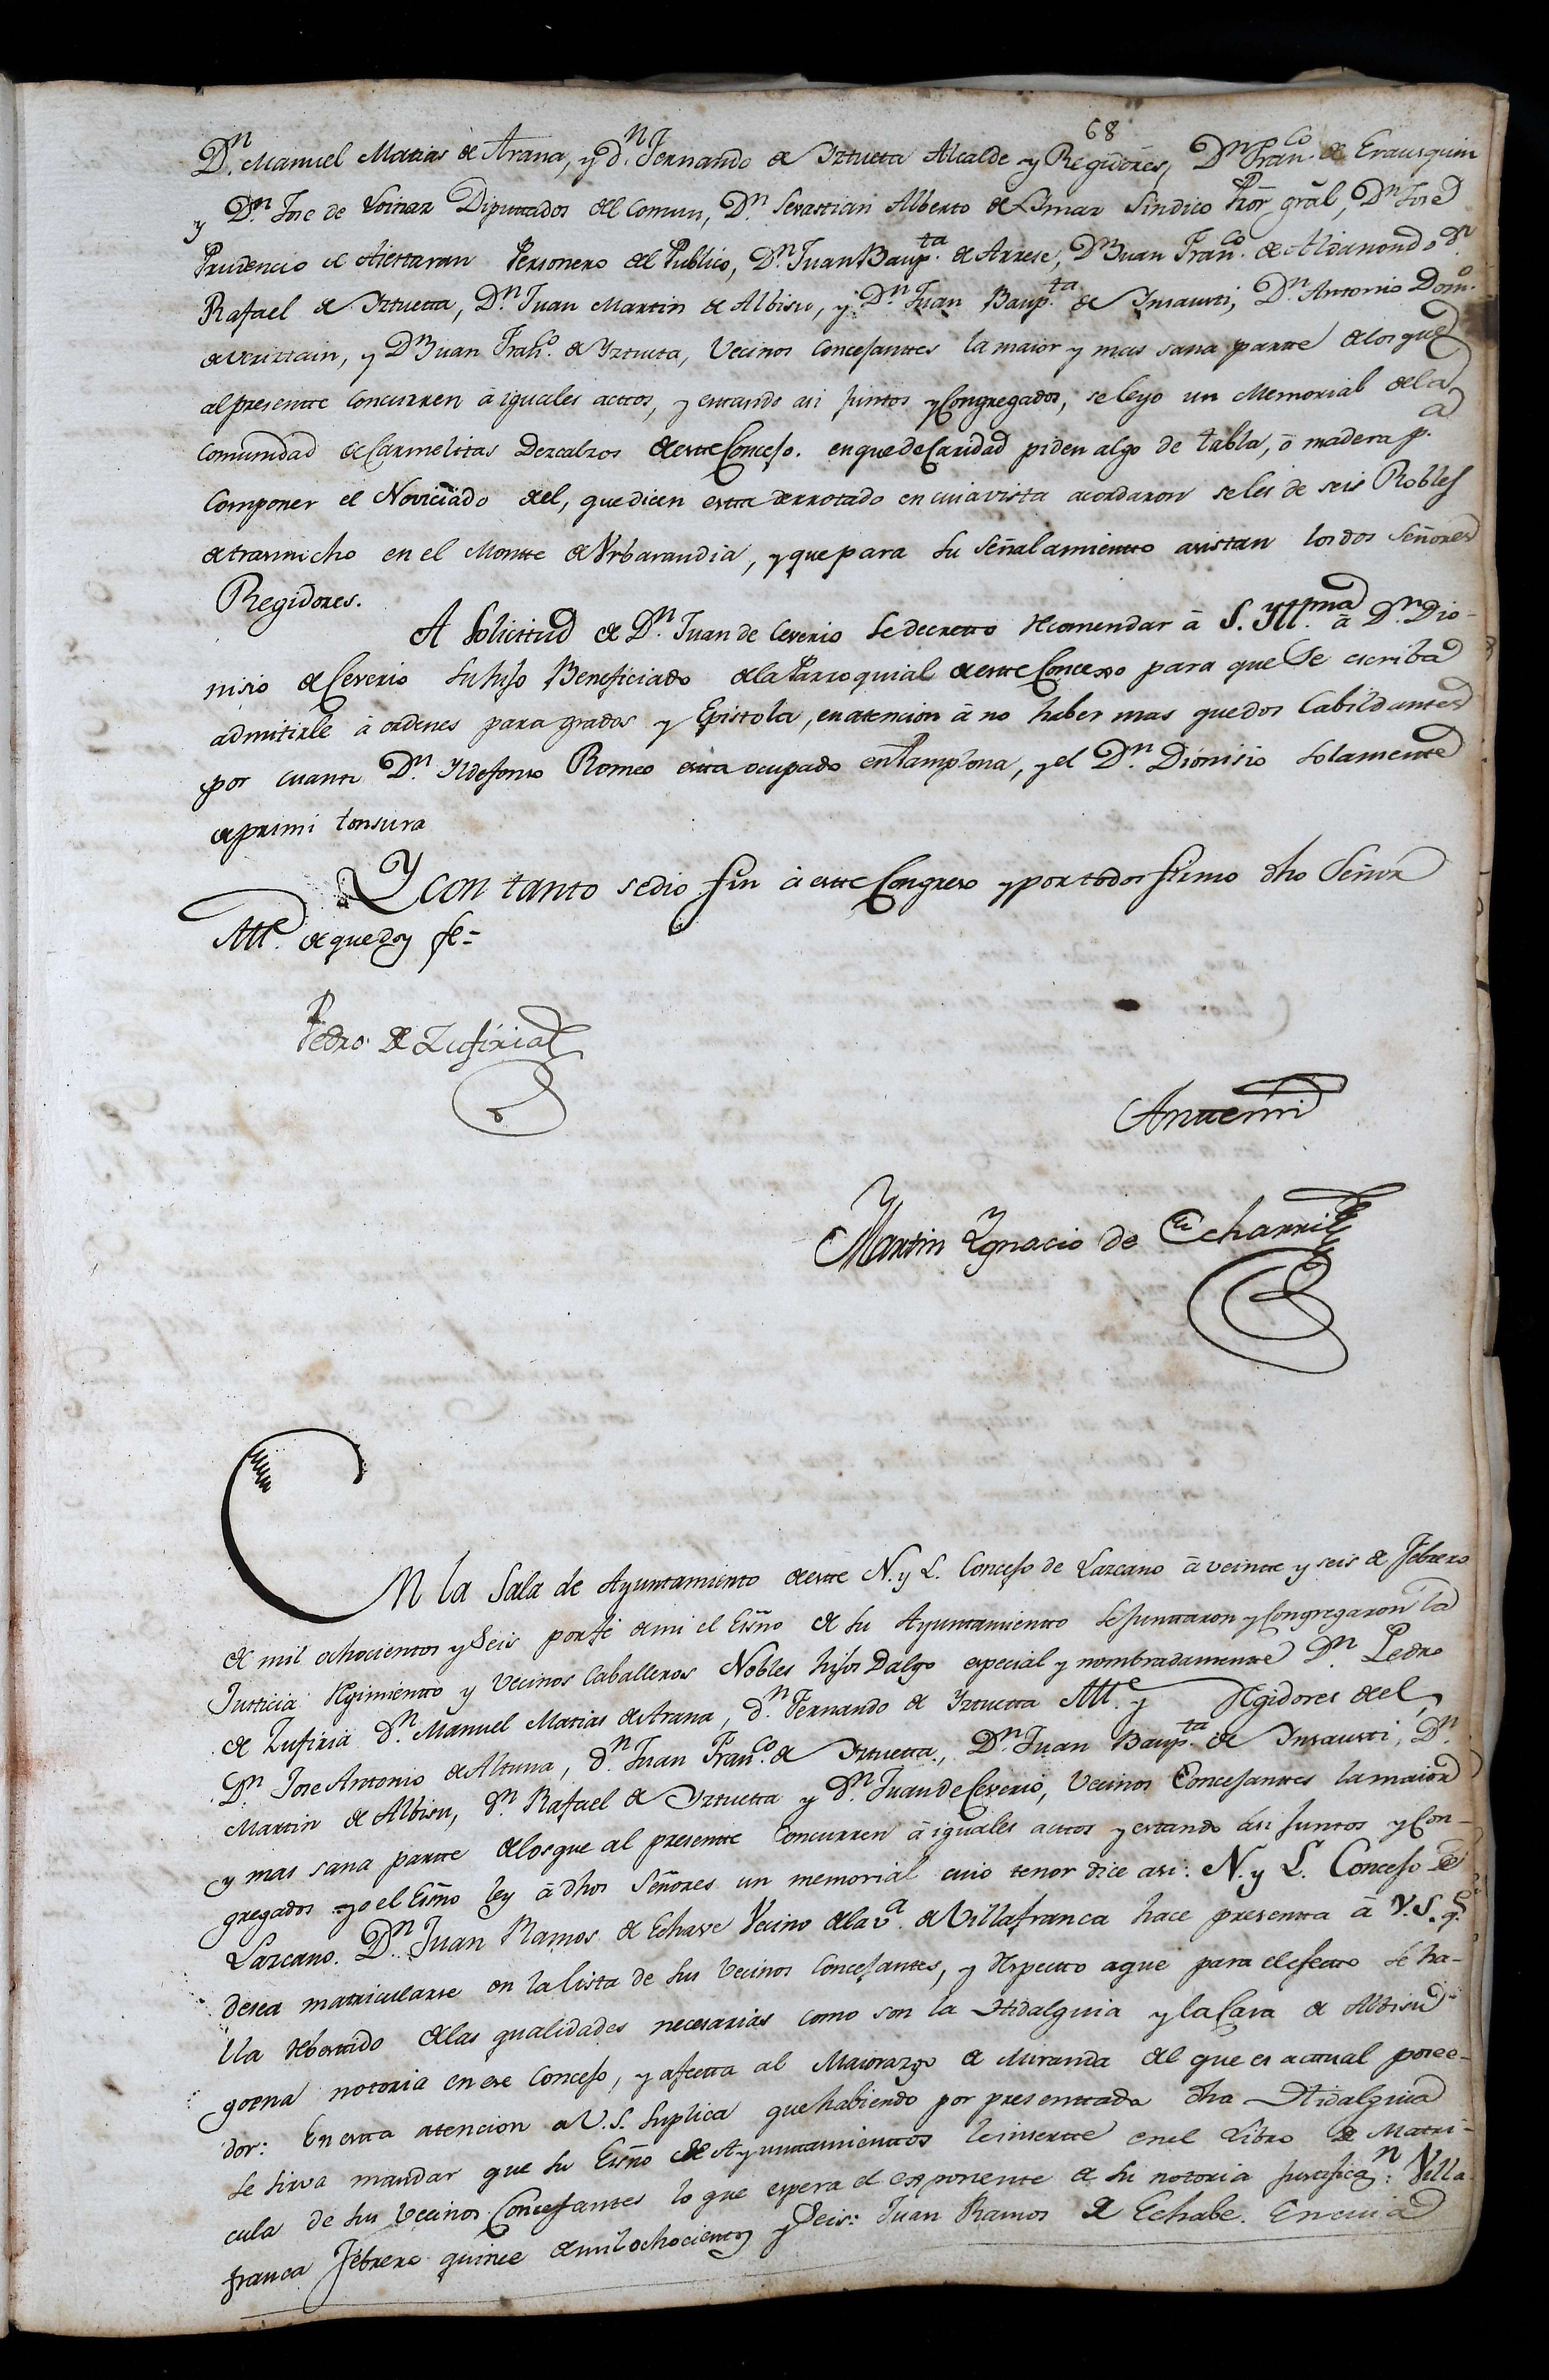 68
Dn. Manuel Matias de Arana, y dn. Fernando de Yztueta Alcalde y Regidores, Dn Franco. de Erausquin
y Dn. Jose de Diputtados del Comun, Dn. Sevastian Alberto de Aimar Sindico Pror gral, Dn Jose
Prudencio de Aiestaran Personero del Publico, Dn. Juan Baupta. de Arrese, Dn Juan Franco. de Aldanondo dn
Rafael de Yztuetta, Dn. Juan Martin de Albisu, y Dn. Juan Baupta. de Ynsausti, Dn. Antonio Domo.
de Veriztain, y Dn Juan Franco. de Yztueta, Vecinos Concejanttes la maior y mas sana partte de los que
al presentte Concurren à iguales acttos, y estando asi juntos y Congregados, se leyo un Memorial de la
Comunidad de Carmelitas Dezcalzos de estte Concejo. en que de Caridad piden algo de tabla, ò madera pa.
Componer el Noviciado del, que dicen estta derrotado en cuia vista acordaron se les de seis Robles
de trasmocho en el Montte de Urbarandia, y que para su Señalamientto asistan los dos Señores
Regidores.
A Solicittud de Dn. Juan de Ceverio se decretto recomendar à S. Yll.ma à Dn. Dio-
nisio de Ceverio su hijo Beneficiado de la Parroquial de estte Concexo para que Se escriba
admitirle à ordenes para grados y Epistola, en atencion à no haber mas que dos Cabildantes
por cuantt Dn. Yldefonso Romeo estta ocupado en Pamplona, y el Dn. Dionisio Solamente
de primi tonsura
Y con tanto se dio fin à estte Congreso y por todos firmo dho Señor
Alle. de que doy fe=
Pedro de Zufiria
Antemi
Martin Ygnacio de Echarri
En la Sala de Ayuntamiento de estte N. y L. Concejo de Lazcano à veintte y seis de Febrero
de mil ochocientos y Seis por fe de mi el Esno de su Ayuntamientto se junttaron y Congregaron la
Justticia Regimientto y Vecinos Caballeros Nobles hijos Dalgo especial y nombradamente Dn. Pedro
de Zufiria Dn. Manuel Matias de Arana, dn. Fernando de Yztuetta Alle. y Regidores del,
Dn Jose Antonio de Altuna, dn. Juan Franco. de Yztuetta, Dn. Juan Baupta. de Ynsausti, Dn.
Martin de Albisu, dn Rafael de Yztuetta y dn. Juan de Ceverio, Vecinos Concejantes la maior
y mas sana partte de los que al presentte Concurren à iguales acttos y estando asi juntos y Con-
gregados yo el Esno ley à dhos Señores un memorial cuio tenor dice asi: N. y L. Concejo de
Lazcano. Dn. Juan Ramos de Echave Vecino de la va. de Villafranca hace presentta à V.S. qe
desea matricularse en la lista de sus Vecinos Concejantes, y Respectto a que para el efectto se ha-
lla Rebestido de las qualidades necesarias como son la Hidalguia y la Casa de Albisu
goena notoria en ese Concejo, y afectta al Maiorazgo de Miranda del que es acttual posee-
dor: En estta atencion a V.S. Suplica que habiendo por presenttada dha Hidalguia
se sirva mandar que su Esno de Ayunttamienttos le insertte en el Libro de Matri-
cula de sus Vecinos Concejantes lo que espera el exponente de su notoria justificon: Villa
franca Febrero quince de mil ochocientos y Seis: Juan Ramos de Echabe. En cuia